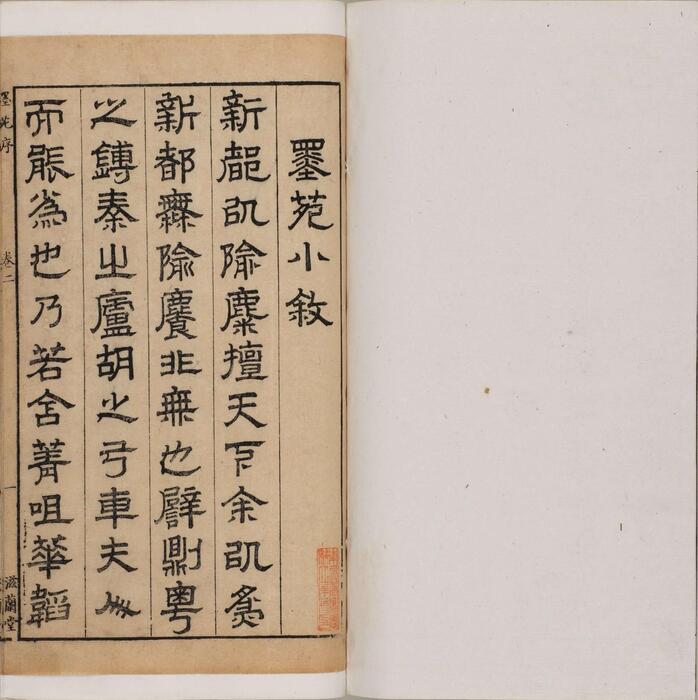 墨苑小敘
新都㠯隃麋擅天下余㠯為
新都無隃麋非無也譬則粵
之鎛秦之廬胡之弓車夫人
而能為也乃若含菁咀華韜
墨苑序 卷二 一 滋蘭堂